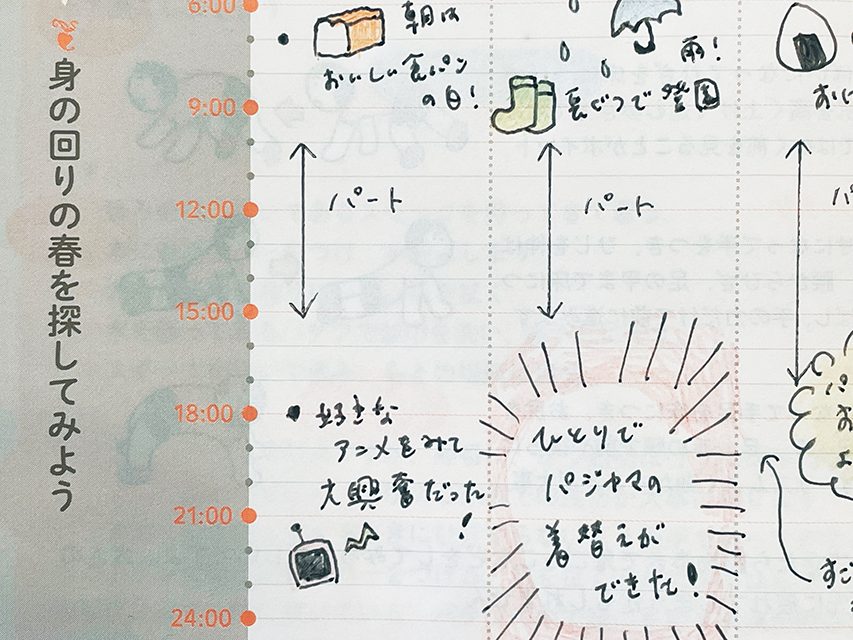 身の回りの春を探してみよう
6:00
9:00
12:00
15:00
18:00
21:00
24:00
朝は
おいしい食パン
の日!
パート
好きな
アニメをみて
大興奮だった
!
雨!
長ぐつで登園
パート
ひとりで
パジャマの
着替えが
できた!
おに
パ
パ
お
よ
すご